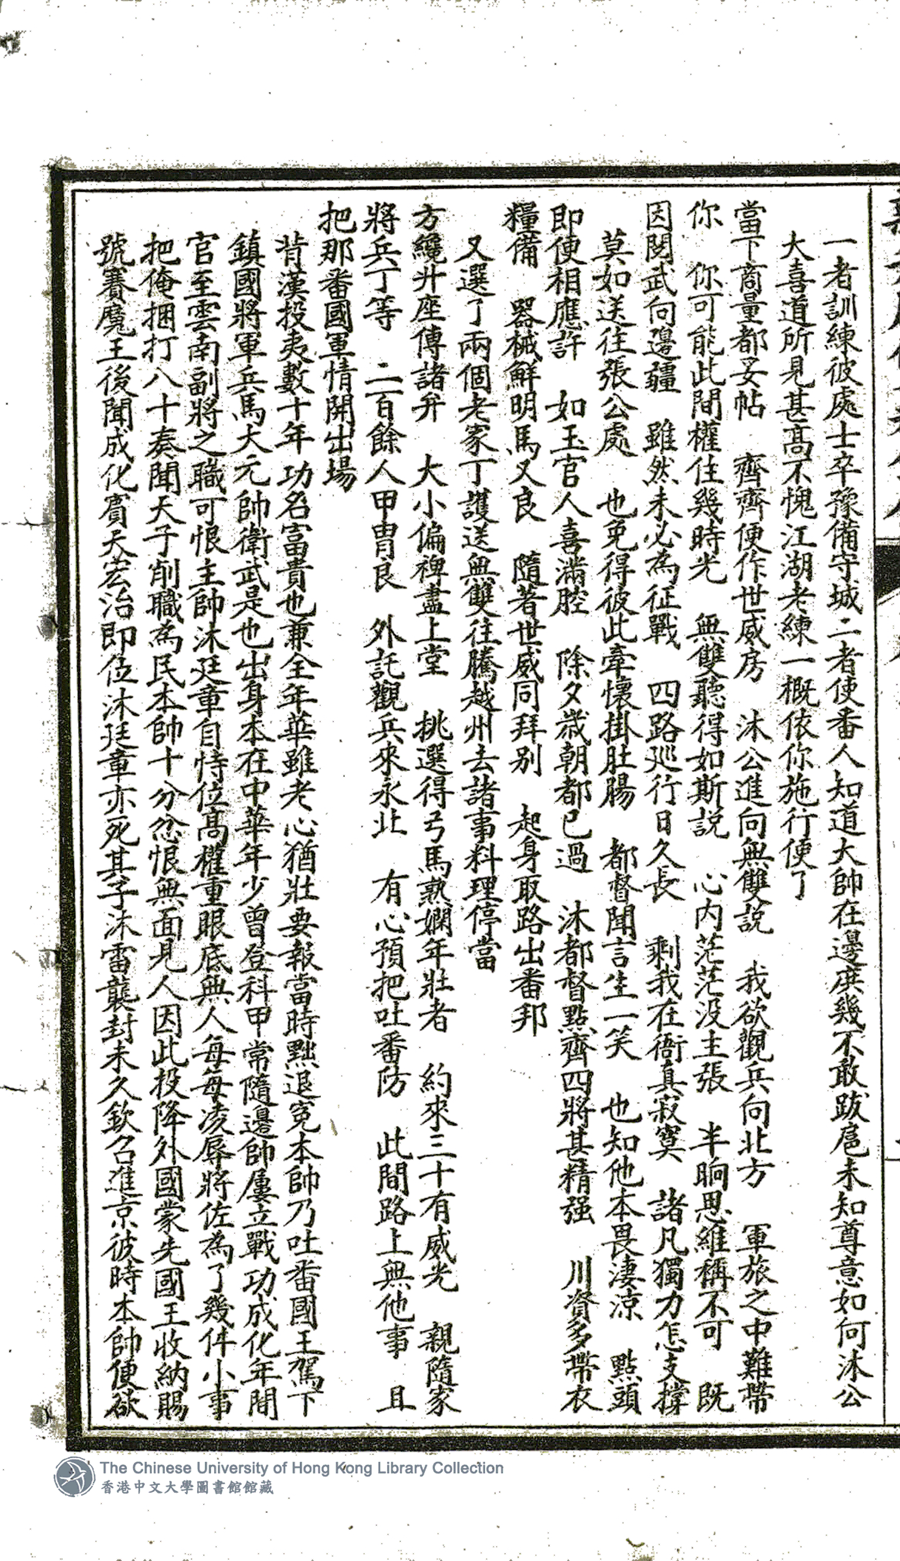 一者訓練彼處士卒豫備守城二者使番人知道大帥在邊庶幾不敢跋扈未知尊意如何沐公
大喜道所見甚高不愧江湖老練一概依你施行便了
當下商量都妥帖　齊齊便作世威房　沐公進向無雙說　我欲觀兵向北方　軍旅之中難帶
你　你可能此間權住幾時光　無雙聽得如斯說　心內茫茫没主張　半晌思維稱不可　既
因閱武向邊疆　雖然未必為征戰　四路巡行日久長　剩我在衙真寂寞　諸凡獨力怎支撐
莫如送往張公處　也免得彼此牽懷掛肚腸　都督聞言生一笑　也知他本畏淒凉　點頭
即便相應許　如玉官人喜滿腔　除夕歲朝都已過　沐都督點齊四將甚精强　川資多帶衣
糧備　器械鮮明馬又良　隨著世威同拜别　起身取路出番邦
又選了兩個老家丁護送無雙往騰越州去諸事料理停當
方纔升座傳諸弁　大小偏裨盡上堂　挑選得弓馬熟嫻年壯者　約來三十有威光　親隨家
將兵丁等　二百餘人甲冑良　外託觀兵來永北　有心預把吐番防　此間路上無他事　且
把那番國軍情開出場
背漢投夷數十年功名富貴也兼全年華雖老心猶壯要報當時黜退冤本帥乃吐番國王駕下
鎮國將軍兵馬大元帥衛武是也出身本在中華年少曾登科甲常隨邊帥屢立戰功成化年間
官至雲南副將之職可恨主帥沐廷章自恃位高權重眼底無人每每凌辱將佐為了幾件小事
把俺捆打八十奏聞天子削職為民本帥十分忿恨無面見人因此投降外國蒙先國王收納賜
號賽魔王後聞成化賓天宏治即位沐廷章亦死其子沐雷襲封未久欽召進京彼時本帥便欲
The Chinese University of Hong Kong Library Collection
香港中文大學圖書館館藏